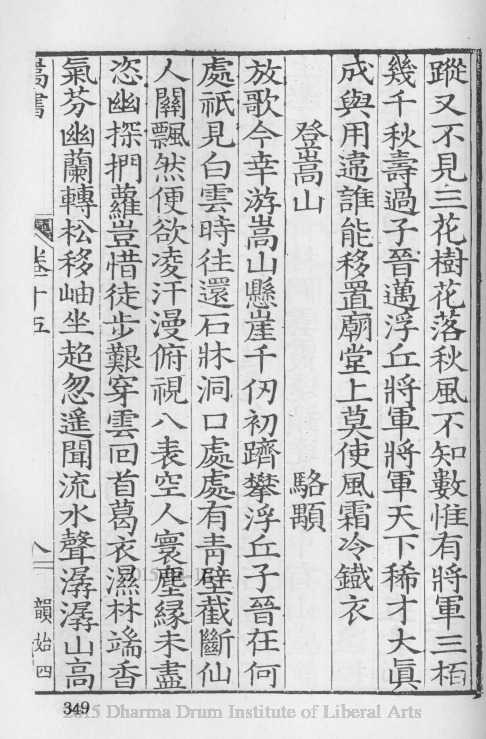 蹤又不見三花樹花落秋風不知數惟有將軍三栢
幾千秋壽過子晉邁浮丘將軍將軍天下稀才大眞
成與用違誰能移置廟堂上莫使風霜冷鐵衣
登嵩山　駱顒
放歌今幸游嵩山懸崖千仞初躋攀浮丘子晉在何
處祇見白雲時往還石牀洞口處處有靑壁截斷仙
人關飄然便欲凌汗漫俯視八表空人寰塵緣未盡
恣幽探捫蘿豈惜徒步艱穿雲回首葛衣濕林端香
氣芬幽蘭轉松移岫坐超忽遥聞流水聲潺潺山高
嵩書 卷十五 八 韻始四
349
2015 Dharma Drum Institute of Liberal Arts